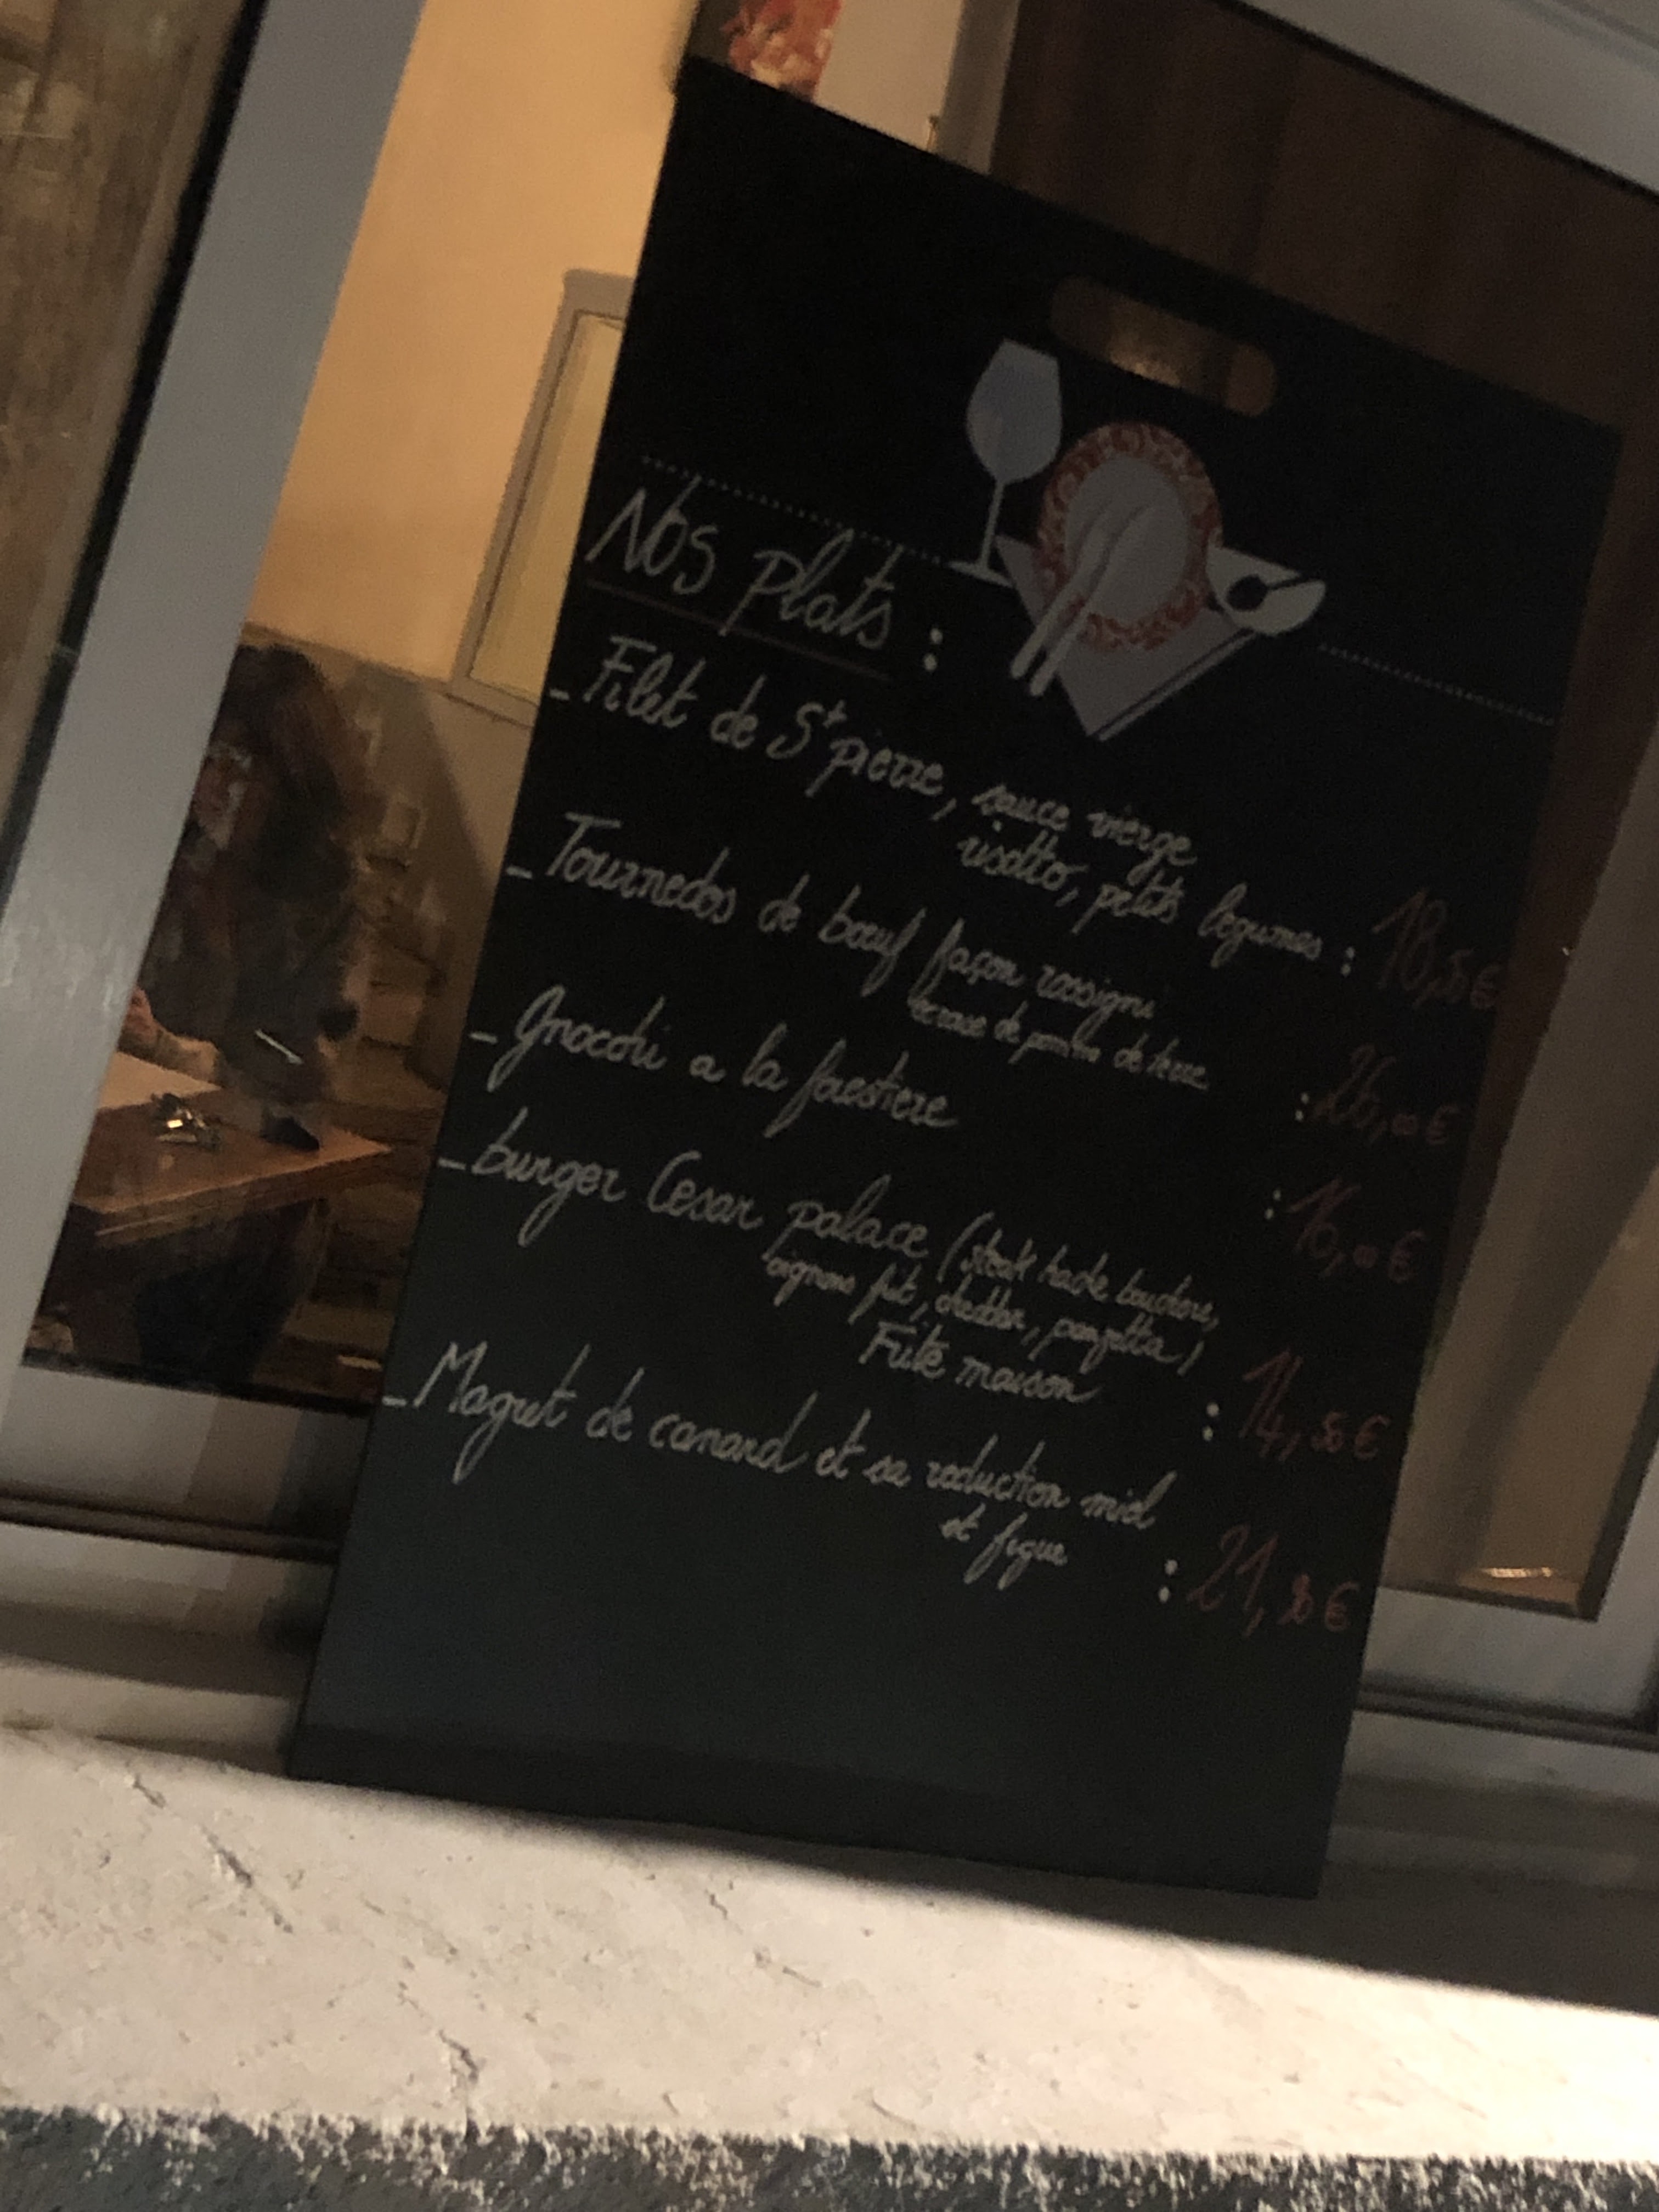 Nos plats :
_ Filet de St pierre, sauce vierge
risotto, petits légumes : 18,50€
_ Tournedos de bœuf façon rossigni
écrasé de pomme de terre : 26,00€
_ Gnocchi a la forestiere : 16,00€
_ burger Cesar palace (steak haché bouchère,
oignons frit, cheddar, panzetta)
Frite maison : 14,50€
_ Magret de canard et sa reduction miel
et figue : 21,50€